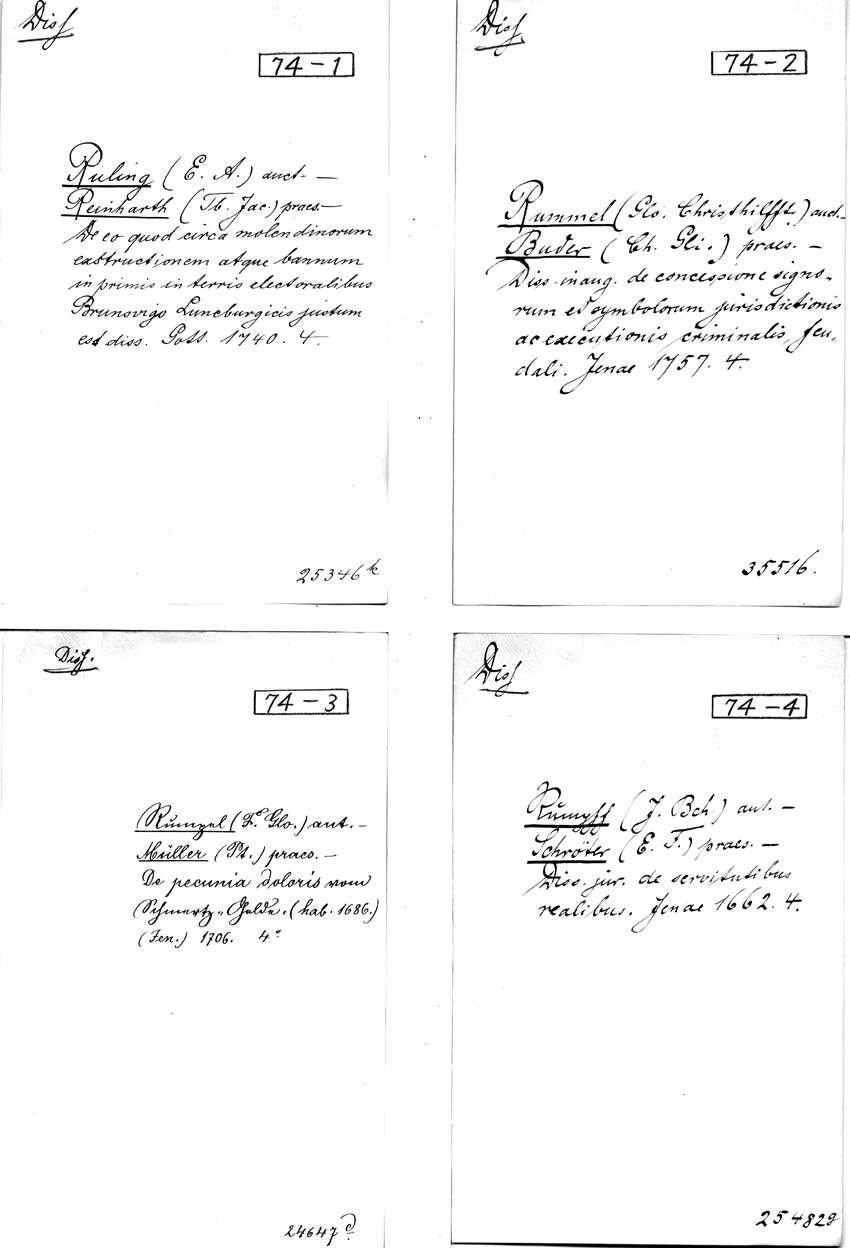 Diss
74-1
Ruling (E. A.) auct. —
Reinharth (Tb. Jac.) praes. —
De eo quod circa molendinorum
exstructionem atque bannum
in primis in terris electoralibus
Brunsvigo Luneburgicis justum
est diss. Gott. 1740. 4.
25346 k
Diss.
74-2
Rummel (Glo. Christhilfft.) auct. —
Buder (Ch. Gli.) praes. —
Diss. inaug. de concessione signo-
rum et symbolorum jurisdictionis
ac executionis criminalis, feu-
dali. Jenae 1757. 4.
35516.
Diss.
74-3
Rumpel (F. Glo.) aut. —
Müller (Pt.) praes. —
De pecunia doloris vom
Schmertz-Gelde. (hab. 1686.)
(Jen.) 1706. 4°
24647 d
Diss
74-4
Rumpff (J. Bch.) aut. —
Schröter (E. F.) praes. —
Diss. jur. de servitutibus
realibus. Jenae 1662. 4.
25482g